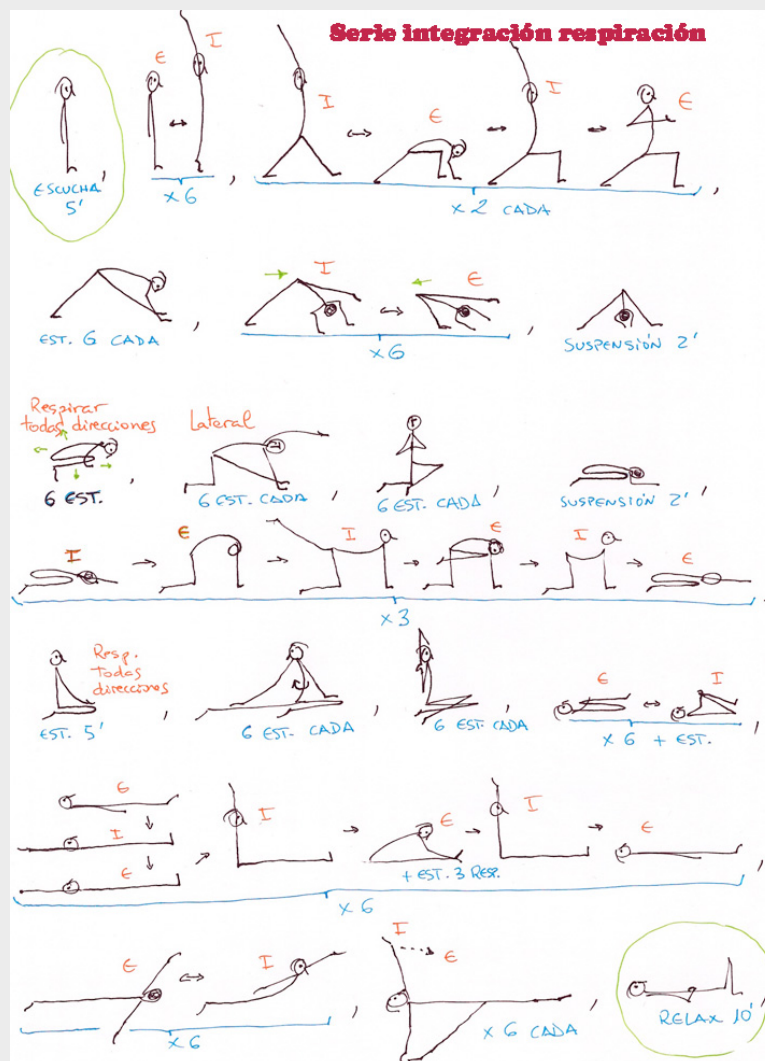 Serie integración respiración
E
I
I
E
I
E
ESCUCHA
5'
x 6
,
,
x 2 CADA
EST. 6 CADA
,
I
E
x 6
,
SUSPENSIÓN 2'
Respirar
todas direcciones
6 EST.
,
Lateral
6 EST. CADA
,
6 EST. CADA
,
SUSPENSIÓN 2'
,
I
E
I
E
I
E
x 3
Resp.
Todas
direcciones
EST. 5'
,
6 EST. CADA
,
6 EST. CADA
,
E
I
x 6 + EST.
,
E
I
E
I
E
I
E
+ EST. 3 RESP.
x 6
,
E
I
x 6
,
I
E
x 6 CADA
,
RELAX 10'